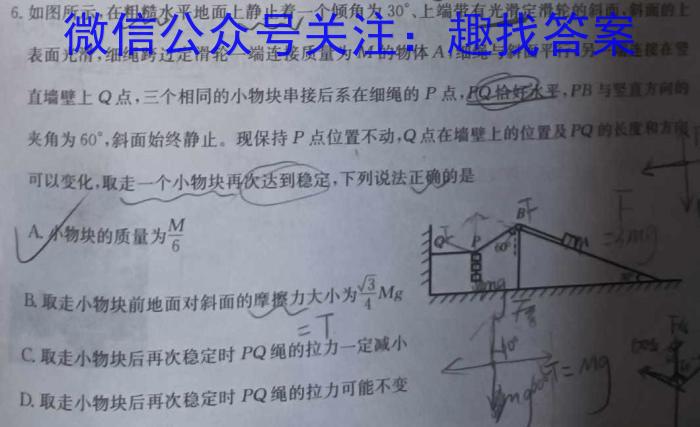 6. 如图所示,在粗糙水平地面上静止着一个倾角为30°、上端带有光滑定滑轮的斜面,斜面的上
微信公众号关注：趣找答案
表面光滑,细绳跨过定滑轮一端连接质量为M的物体A,细绳与斜面平行,另一端连接在竖
直墙壁上Q点,三个相同的小物块串接后系在细绳的P点,PQ恰好水平,PB与竖直方向的
夹角为60°,斜面始终静止。现保持P点位置不动,Q点在墙壁上的位置及PQ的长度和方向
可以变化,取走一个小物块再次达到稳定,下列说法正确的是
A. 小物块的质量为M/6
B. 取走小物块前地面对斜面的摩擦力大小为√3/4 Mg
=T
C. 取走小物块后再次稳定时PQ绳的拉力一定减小
D. 取走小物块后再次稳定时PQ绳的拉力可能不变
Q P B 60°
T=Mg